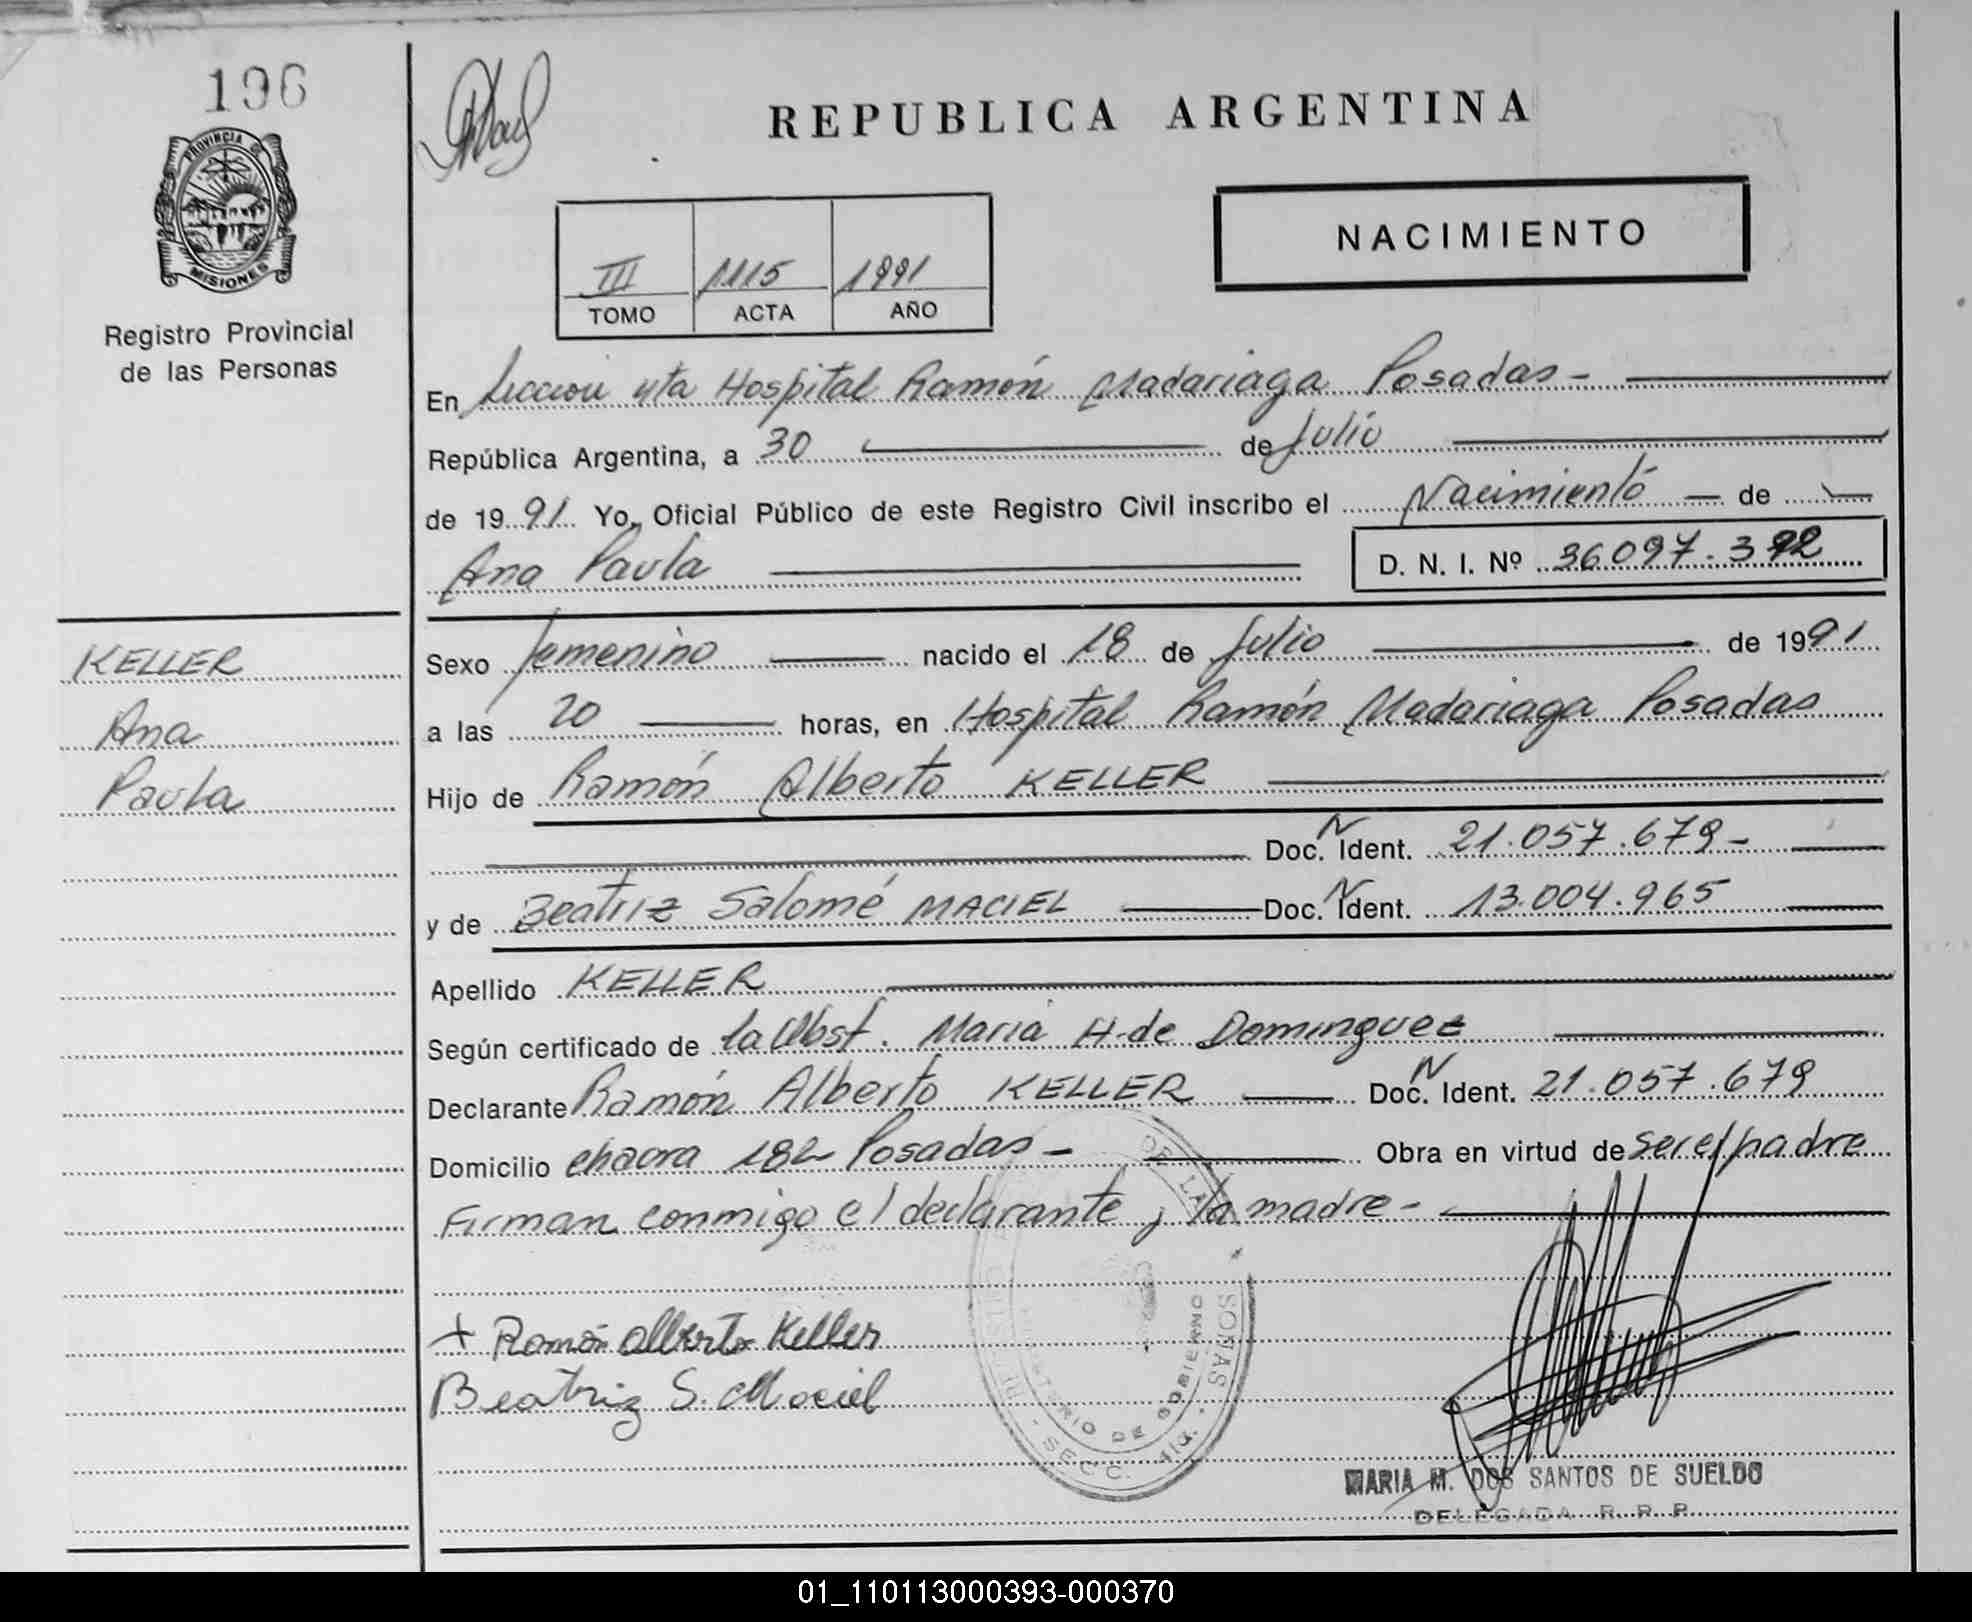 196
PROVINCIA DE
MISIONES
Registro Provincial
de las Personas
KELLER
Ana
Paula
REPUBLICA ARGENTINA
III 1115 1991
TOMO ACTA AÑO
NACIMIENTO
En Sección 4ta Hospital Ramón Madariaga Posadas -
República Argentina, a 30 de Julio
de 1991 Yo, Oficial Público de este Registro Civil inscribo el Nacimiento de
Ana Paula D. N. I. Nº 36.097.392
Sexo femenino nacido el 18 de Julio de 1991
a las 20 horas, en Hospital Ramón Madariaga Posadas
Hijo de Ramón Alberto KELLER
Doc. N Ident. 21.057.679-
y de Beatriz Salomé MACIEL Doc. N Ident. 13.004.965
Apellido KELLER
Según certificado de la Obst. María H. de Dominguez
Declarante Ramón Alberto KELLER Doc. N Ident. 21.057.679
Domicilio chacra 182 Posadas - Obra en virtud de ser el padre
Firman conmigo el declarante y la madre -
+ Ramón Alberto Keller
Beatriz S. Maciel
DE LAS
SONAS
DE GOBIERNO
SECC. 4ta.
MARIA M. DOS SANTOS DE SUELDO
DELEGADA R. R. P.
01_110113000393-000370